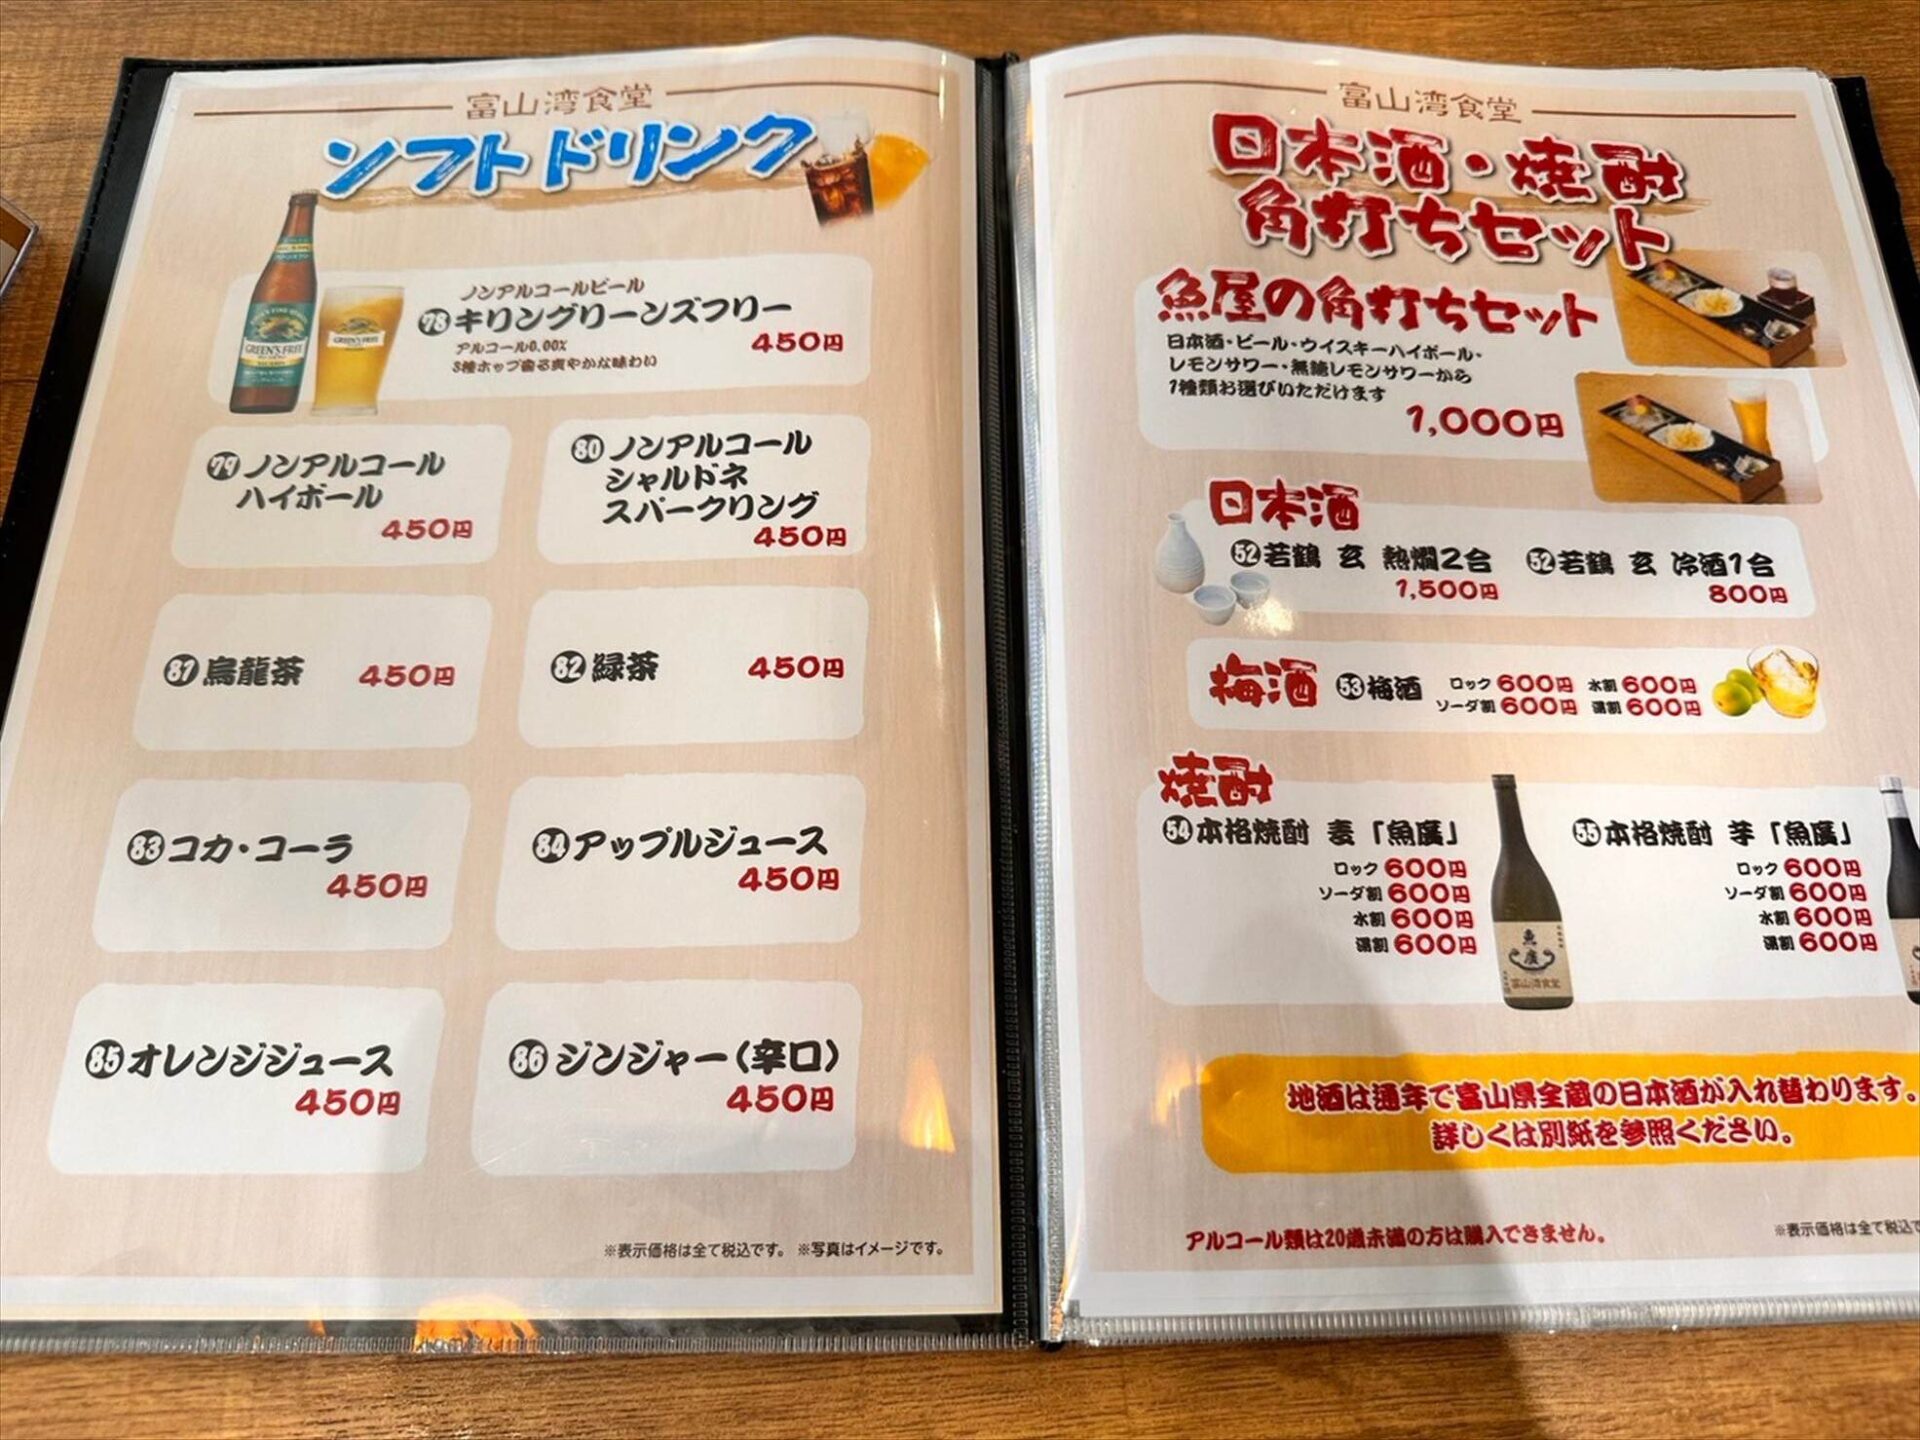 富山湾食堂
ソフトドリンク
ノンアルコールビール
78 キリングリーンズフリー
アルコール0.00%
3種ホップ香る爽やかな味わい
450円
GREEN'S FREE
79 ノンアルコール
ハイボール
450円
80 ノンアルコール
シャルドネ
スパークリング
450円
81 烏龍茶 450円
82 緑茶 450円
83 コカ・コーラ
450円
84 アップルジュース
450円
85 オレンジジュース
450円
86 ジンジャー(辛口)
450円
※表示価格は全て税込です。 ※写真はイメージです。
富山湾食堂
日本酒・焼酎
角打ちセット
魚屋の角打ちセット
日本酒・ビール・ウイスキーハイボール・
レモンサワー・無糖レモンサワーから
1種類お選びいただけます
1,000円
日本酒
52 若鶴 玄 熱燗2合
1,500円
52 若鶴 玄 冷酒1合
800円
梅酒 53 梅酒 ロック 600円 水割 600円
ソーダ割 600円 湯割 600円
焼酎
54 本格焼酎 麦「魚廣」
ロック 600円
ソーダ割 600円
水割 600円
湯割 600円
魚廣
富山湾食堂
55 本格焼酎 芋「魚廣」
ロック 600円
ソーダ割 600円
水割 600円
湯割 600円
地酒は通年で富山県全蔵の日本酒が入れ替わります。
詳しくは別紙を参照ください。
アルコール類は20歳未満の方は購入できません。
※表示価格は全て税込で